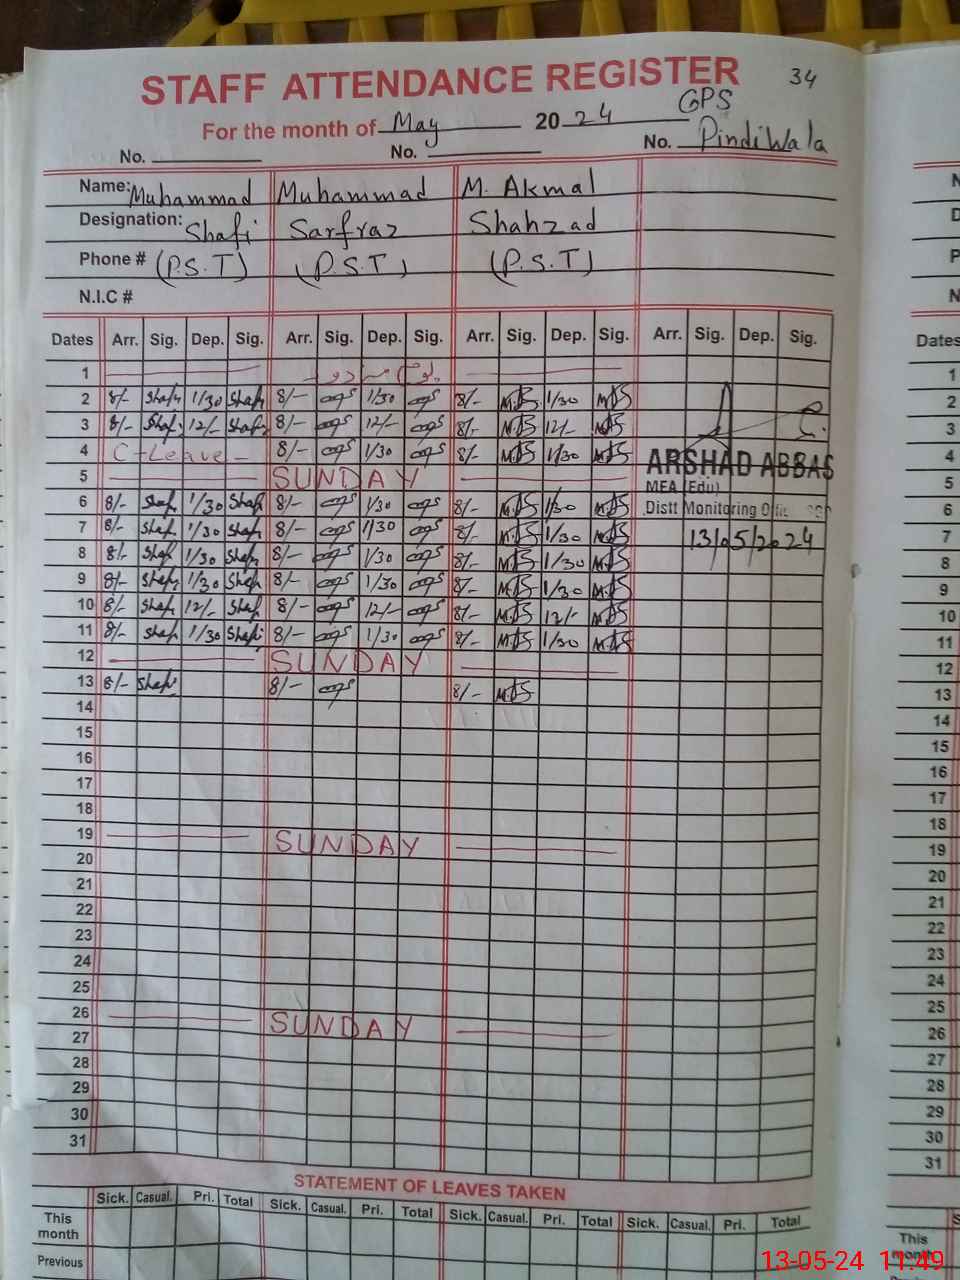 STAFF ATTENDANCE REGISTER 34
For the month of May 2024 GPS
No. No. No. PindiWala
Name: Muhammad Muhammad M. Akmal
Designation: Shafi Sarfraz Shahzad
Phone # (P.S.T) (P.S.T) (P.S.T)
N.I.C #
Dates Arr. Sig. Dep. Sig. Arr. Sig. Dep. Sig. Arr. Sig. Dep. Sig. Arr. Sig. Dep. Sig.
1
2 8/- Shafi 1/30 Shafi 8/- 1/30 8/- 1/30
3 8/- Shafi 12/- Shafi 8/- 12/- 8/- 12/-
4 C-Leave - 8/- 1/30 8/- 1/30 ARSHAD ABBAS
5 SUNDAY MEA (Edu)
6 8/- Shafi 1/30 Shafi 8/- 1/30 8/- 1/30 Distt Monitoring
7 8/- Shafi 1/30 Shafi 8/- 1/30 8/- 1/30 13/05/2024
8 8/- Shafi 1/30 Shafi 8/- 1/30 8/- 1/30
9 8/- Shafi 1/30 Shafi 8/- 1/30 8/- 1/30
10 8/- Shafi 12/- Shafi 8/- 12/- 8/- 12/-
11 8/- Shafi 1/30 Shafi 8/- 1/30 8/- 1/30
12 SUNDAY
13 8/- Shafi 8/- 8/-
14
15
16
17
18
19 SUNDAY
20
21
22
23
24
25
26 SUNDAY
27
28
29
30
31
STATEMENT OF LEAVES TAKEN
Sick. Casual. Pri. Total Sick. Casual. Pri. Total Sick. Casual. Pri. Total Sick. Casual. Pri. Total
This month
Previous
Dates
1
2
3
4
5
6
7
8
9
10
11
12
13
14
15
16
17
18
19
20
21
22
23
24
25
26
27
28
29
30
31
This
month
13-05-24 11:49